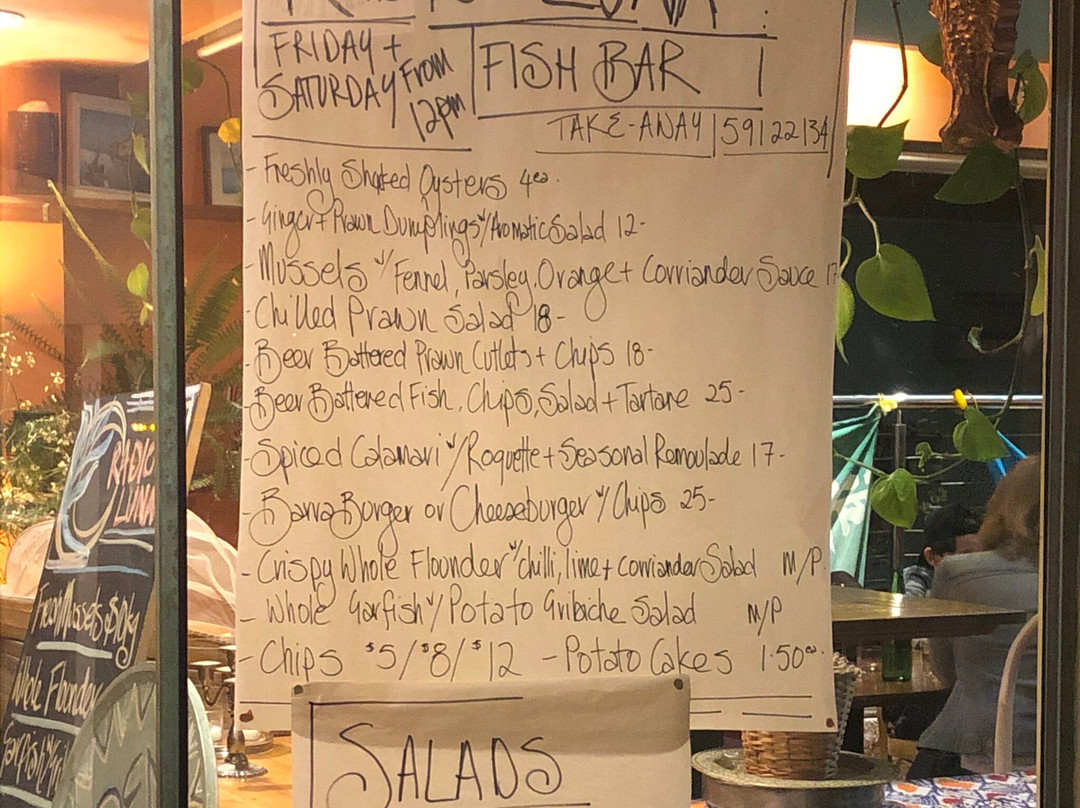 FRIDAY +
SATURDAY From
12pm
FISH BAR
TAKE-AWAY 59122134
- Freshly Shucked Oysters 4ea.
- Ginger + Prawn Dumplings w/ Aromatic Salad 12-
- Mussels w/ Fennel, Parsley, Orange + Corriander Sauce 17
- Chilled Prawn Salad 18-
- Beer Battered Prawn Cutlets + Chips 18-
- Beer Battered Fish, Chips, Salad + Tartare 25-
- Spiced Calamari w/ Roquette + Seasonal Remoulade 17-
- Barra Burger or Cheeseburger w/ Chips 25-
- Crispy Whole Flounder w/ chilli, lime + corriander Salad M/P.
- Whole Garfish w/ Potato Gribiche Salad M/P
- Chips $5/$8/$12 - Potato Cakes 1.50ea.
SALADS
RADIO
LUNA
Fresh Mussels
Whole Flounder
Garfish